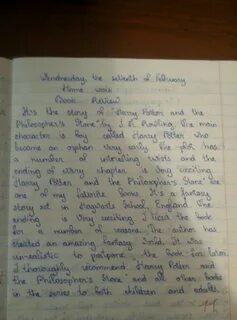 Wednesday, the seventh of February
Home work
Book Review
It's the story of "Harry Potter and the
Philosopher's Stone" by J. K. Rowling. The main
character is boy called Harry Potter who
became an orphan very early. The plot has
a number of interesting twists and the
ending of every chapter is very exciting.
"Harry Potter and the Philosopher's Stone" are
one of my favorite books. It's a fantasy
story set in Hogwarts School, England. The
ending is very exciting. I liked the book
for a number of reasons. The author has
created an amazing fantasy world. It was
unrealistic to postpone the book for later.
I thoroughly recommend Harry Potter and
the Philosopher's Stone and all other books
in the series to both children and adults.